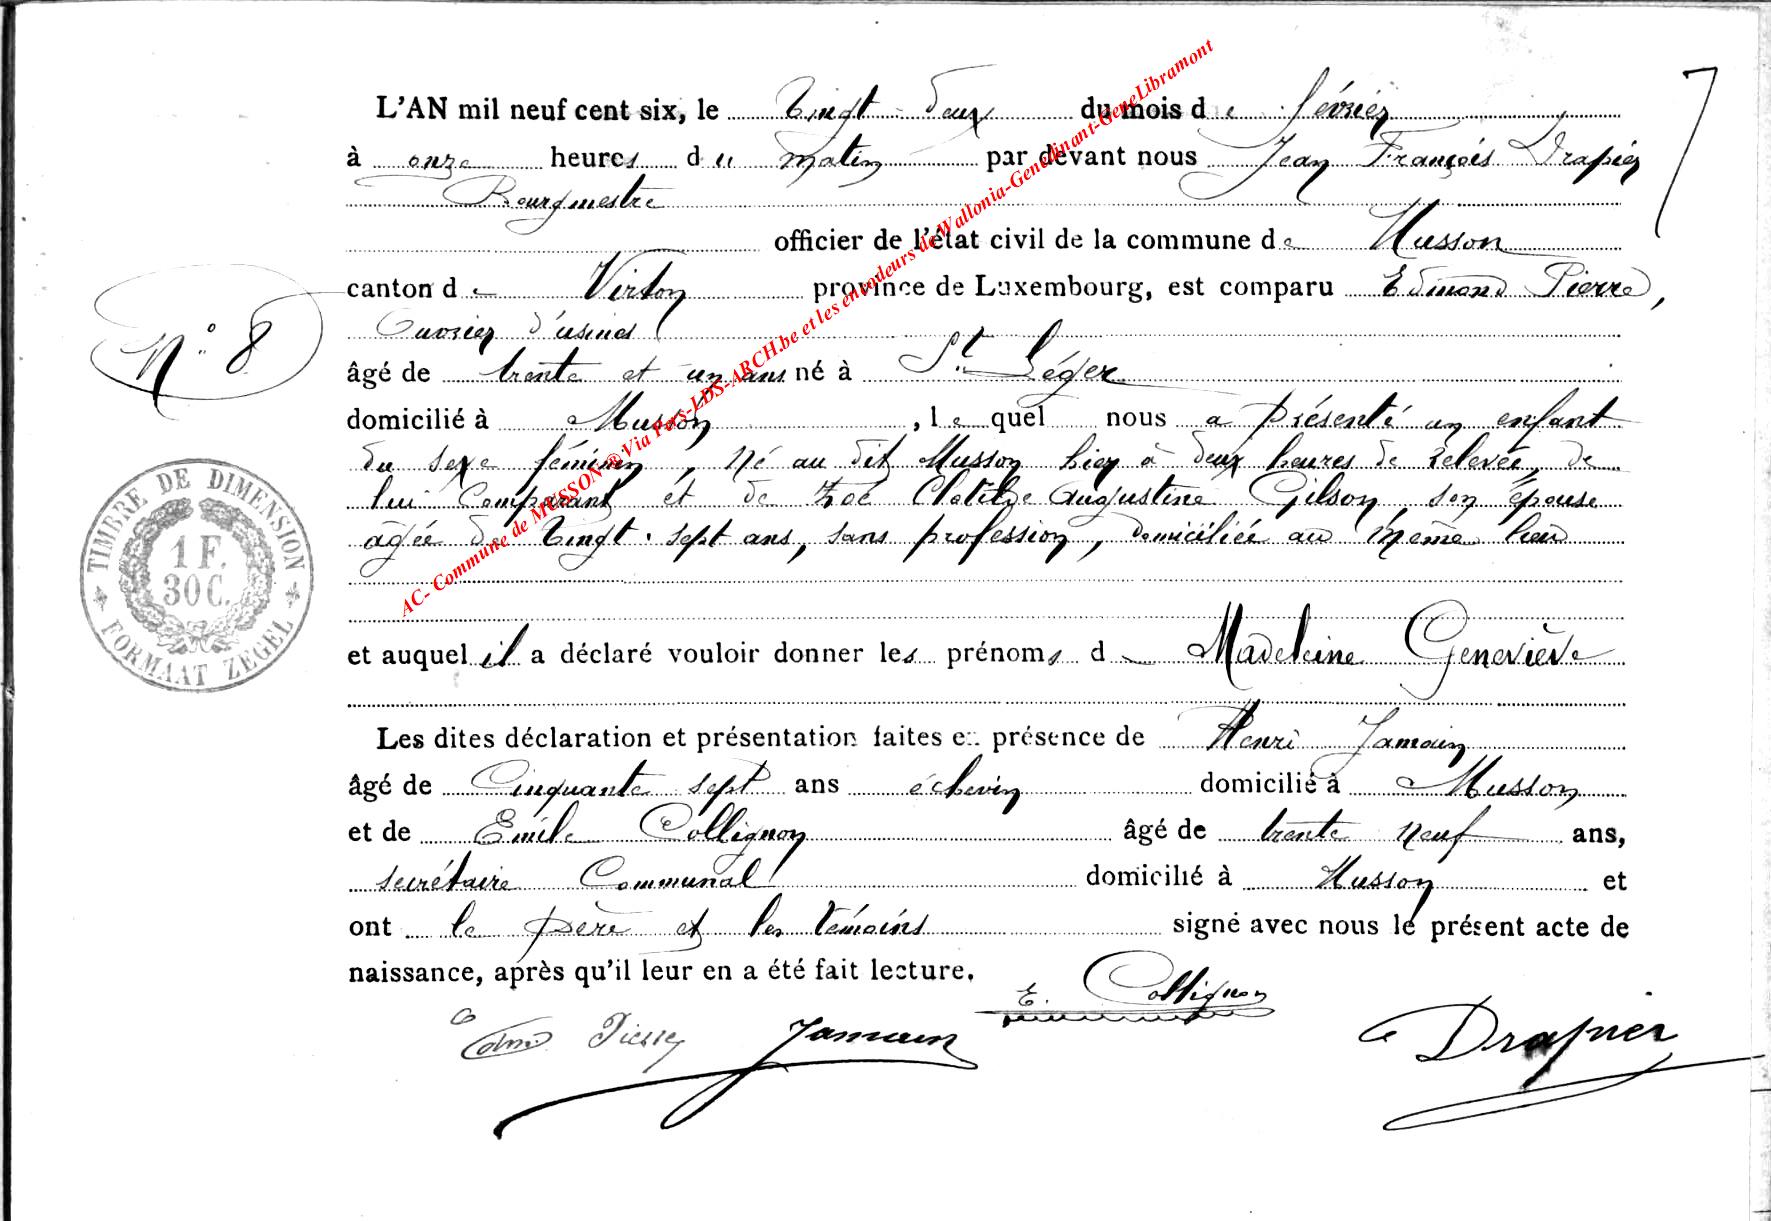 L'AN mil neuf cent six, le Vingt-deux du mois de février
à onze heures du matin par devant nous Jean François Drapier
Bourgmestre
officier de l'état civil de la commune de Musson
canton de Virton province de Luxembourg, est comparu Edmond Pierre,
Ouvrier d'usines
N° 8
âgé de trente et un ans né à St Léger
domicilié à Musson, lequel nous a présenté un enfant
du sexe féminin, né au dit Musson hier à deux heures de relevée, de
lui Comparant et de Zoé Clotilde Augustine Gilson son épouse
agée de Vingt-sept ans, sans profession, domiciliée au même lieu
TIMBRE DE DIMENSION
1 F.
30 C.
FORMAAT ZEGEL
et auquel il a déclaré vouloir donner les prénoms d Madeleine Geneviève
Les dites déclaration et présentation faites en présence de Henri Jamain
âgé de Cinquante sept ans échevin domicilié à Musson
et de Emile Collignon âgé de trente neuf ans,
secrétaire Communal domicilié à Musson et
ont le père et les témoins signé avec nous le présent acte de
naissance, après qu'il leur en a été fait lecture.
E. Collignon
Edmd Pierre Jamain Drapier
AC- Commune de MUSSON ® Via Pars-LDS-ARCH.be et les encodeurs de Wallonia-Genedinant-GeneLibramont